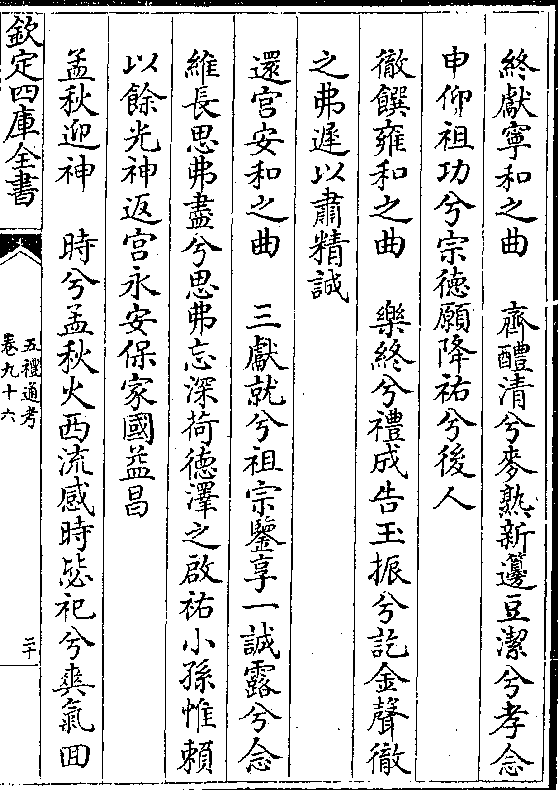 終獻寧和之曲　齊醴清兮麥熟新籩豆潔兮孝念
申仰祖功兮宗徳願降祐兮後人
徹饌雍和之曲　樂終兮禮成告玉振兮訖金聲徹
之弗遲以肅精誠
還宫安和之曲　三獻就兮祖宗鑒享一誠露兮念
維長思弗盡兮思弗忘深荷徳澤之啟祐小孫惟頼
以餘光神返宫永安保家國益昌
孟秋迎神　時兮孟秋火西流感時毖祀兮爽氣回
欽定四庫全書
五禮通考
卷九十六
二十